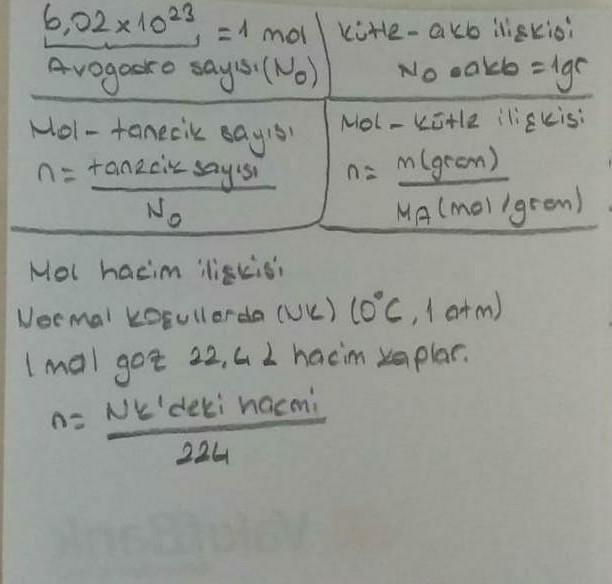 6,02x10²³ = 1 mol
Avogadro sayısı (N₀)
kütle-akb ilişkisi
N₀ • akb = 1gr
Mol-tanecik sayısı
n = tanecik sayısı
N₀
Mol-kütle ilişkisi
n = m(gram)
MA (mol/gram)
Mol hacim ilişkisi
Normal koşullarda (NK) (0°C, 1 atm)
1 mol gaz 22,4 L hacim kaplar.
n = NK'deki hacmi
224
VakıfBank